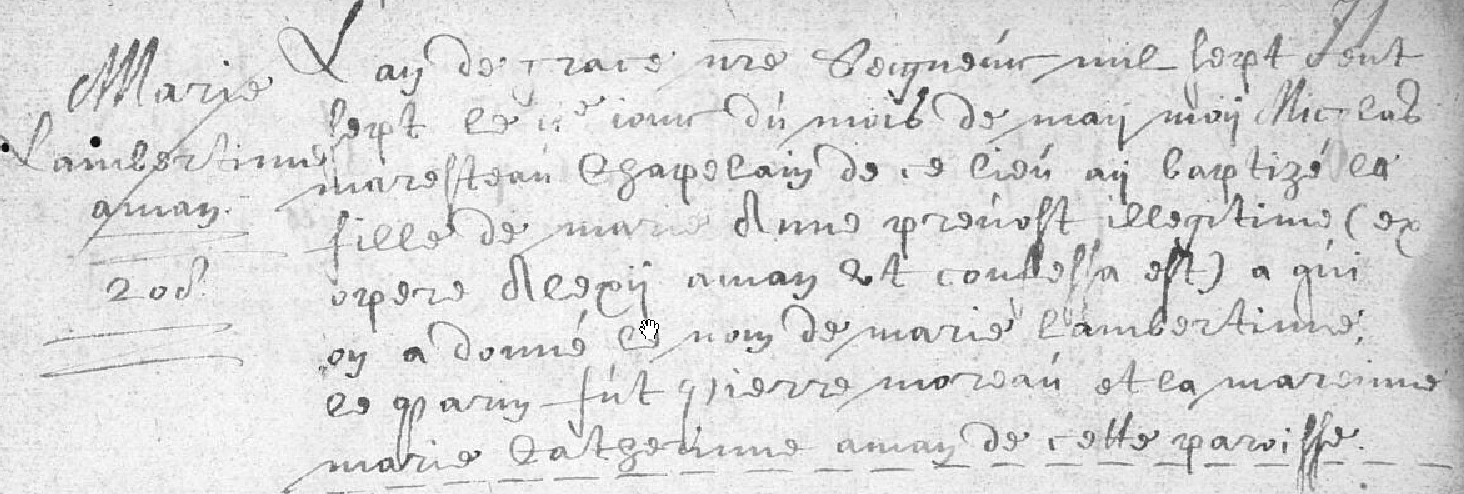 71
Marie
Lambertinne
aman
208
L'an de grace nre Seigneur mil sept cent
sept le jour du mois de maij moij Nicolas
maresteau Chapelain de ce lieu aij baptizé la
fille de marie Anne preuost illegitime (ex
opere Alexij aman vt confessa est) a qui
on a donné le nom de marie lambertinne,
le parin fut pierre moreau et la marinne
marie Catherinne aman de cette paroisse.